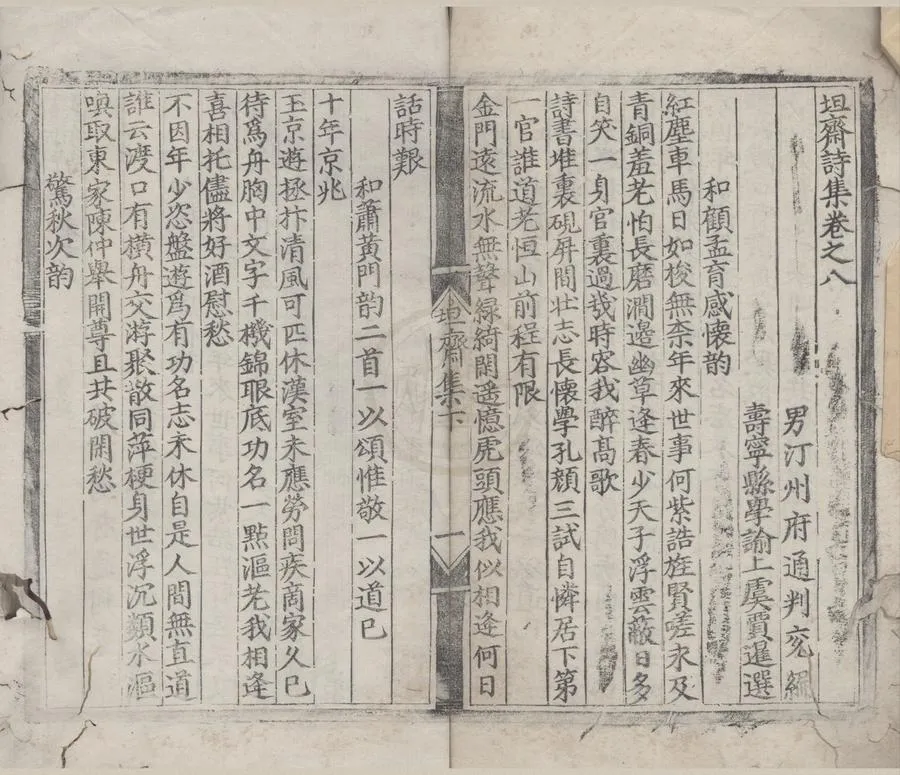 坦齋詩集卷之八
男汀州府通判兖編
壽寧縣學諭上虞賈暹選
和顧孟育感懷韵
紅塵車馬日如梭無柰年來世事何紫誥旌賢嗟未及
青銅羞老怕長磨澗邊幽草逢春少天子浮雲蔽日多
自笑一身官裏過幾時容我醉髙歌
詩書堆裏硯屏間壯志長懷學孔顔三試自憐居下第
一官誰道老恒山前程有限
金門遠流水無聲綠綺閑遥憶虎頭應我似相逢何日
坦齋集下
一
話時艱
和蕭黃門韵二首一以頌惟敬一以道巳
十年京兆
玉京遊拯抃清風可匹休漢室未應勞問疾商家久巳
待爲舟胸中文字千機錦眼底功名一點漚老我相逢
喜相托儘將好酒慰愁
不因年少恣盤遊爲有功名志未休自是人間無直道
誰云渡口有横舟交游聚散同萍梗身世浮沉類水漚
嗔取東家陳仲舉開尊且共破閑愁
驚秋次韵